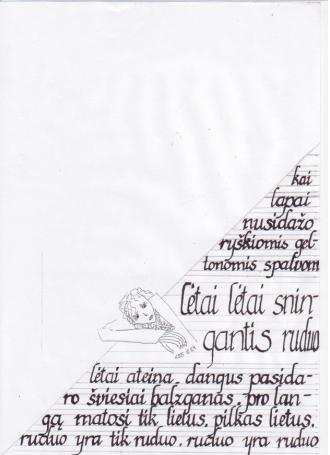 kai
lapai
nusidažo
ryškiomis gel-
tonomis spalvom
lėtai lėtai snin-
gantis ruduo
lėtai ateina, dangus pasida-
ro šviesiai balzganas, pro lan-
gą matosi tik lietus, pilkas lietus,
ruduo yra tik ruduo, ruduo yra ruduo